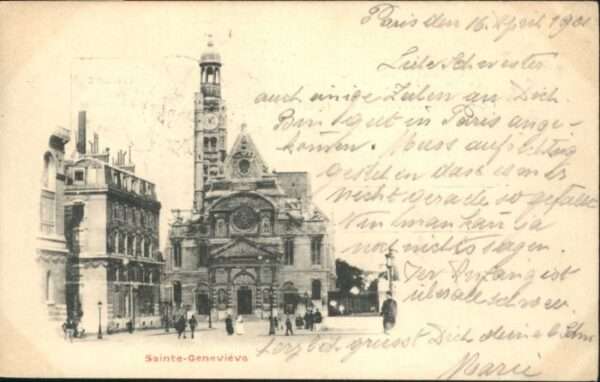 Paris den 16. April 1901
Liebe Schwester
auch einige Zeilen an Dich.
Bin gut in Paris ange-
kommen. Muss aufrichtig
gestehen dass es mir
nicht gerade so gefällt
man kan ja
noch nichts sagen.
Der Anfang ist
überall schwer.
Herzlich grüsst Dich deine
Marie
Sainte-Geneviève